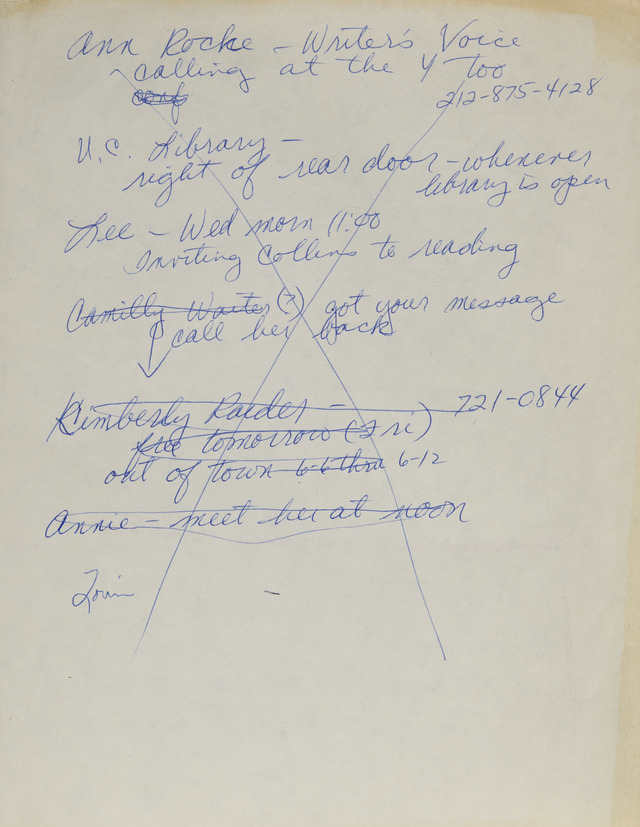 Ann Rocke - Writer's Voice
calling at the Y Too
conf
212-875-4128
U.C. Library -
right of rear door - whenever
library is open
Lee - Wed morn 11:00
Inviting Collins to reading
Camilly Waiter (?) got your message
call her back
Kimberly Raider - 721-0844
tomorrow (Fri)
out of town 6-6 thru 6-12
Annie - meet her at noon